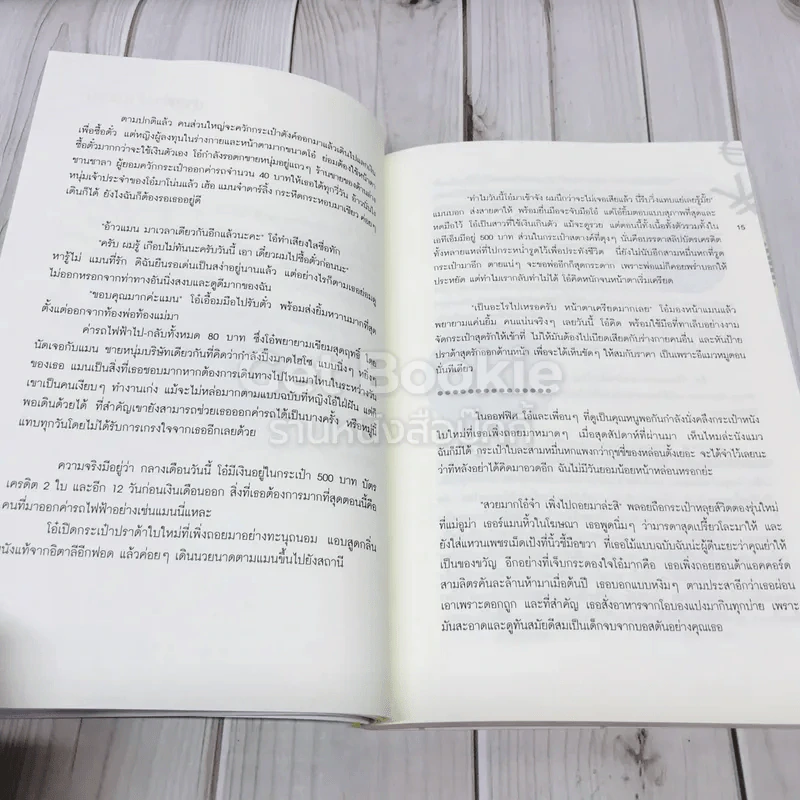 ตามปกติแล้ว คนส่วนใหญ่จะควักกระเป๋าตังค์ออกมาแล้วเดินไปแลกเงิน
เพื่อซื้อตั๋ว แต่หญิงผู้ลงทุนในร่างกายและหน้าตามากขนาดโอ๋ ย่อมต้องใช้หน้าตา
ซื้อตั๋วมากกว่าจะใช้เงินตัวเอง โอ๋กำลังรอดกชายหนุ่มอยู่แถวๆ ร้านขายของด้านล่าง
ชานชาลา ผู้ยอมควักกระเป๋าออกค่ารถจำนวน 40 บาทให้เธอได้ทุกวี่วัน อ้าวนั่นไง
หนุ่มเจ้าประจำของโอ๋มาโน่นแล้ว เฮ้อ แมนจ๋าดาร์ลิ้ง กระหืดกระหอบมาเชียว ค่อยๆ
เดินก็ได้ ยังไงฉันก็ต้องรอเธออยู่ดี
"อ้าวแมน มาเวลาเดียวกันอีกแล้วนะคะ" โอ๋ทำเสียงใสซื่อทัก
"ครับ ผมรู้ เกือบไม่ทันนะครับวันนี้ เอา เดี๋ยวผมไปซื้อตั๋วก่อนนะ"
หารู้ไม่ แมนที่รัก ดิฉันยืนรอเด่นเป็นสง่าอยู่นานแล้ว แต่อย่างไรก็ตามเธอย่อมดู
ไม่ออกหรอกจากท่าทางอันนิ่งสงบและดูดีมากของฉัน
"ขอบคุณมากค่ะแมน" โอ๋เอื้อมมือไปรับตั๋ว พร้อมส่งยิ้มหวานมากที่สุด
ตั้งแต่ออกจากท้องพ่อท้องแม่มา
ค่ารถไฟฟ้าไป-กลับทั้งหมด 80 บาท ซึ่งโอ๋พยายามเขียมสุดฤทธิ์ โดย
นัดเจอกับแมน ชายหนุ่มบริษัทเดียวกันที่คิดว่ากำลังปิ๊งมาดไฮโซ แบบนิ่งๆ หยิ่งๆ
ของเธอ แมนเป็นสิ่งที่เธอชอบมากหากต้องการเดินทางไปไหนมาไหนในระหว่างวัน
เขาเป็นคนเงียบๆ ทำงานเก่ง แม้จะไม่หล่อมากตามแบบฉบับที่หญิงโอ๋ใฝ่ฝัน แต่ก็
พอเดินด้วยได้ ที่สำคัญเขายังสามารถช่วยเธอออกค่ารถได้เป็นบางครั้ง หรือหมู่นี้
แทบทุกวันโดยไม่ได้รับการเกรงใจจากเธออีกเลยด้วย
ความจริงมีอยู่ว่า กลางเดือนวันนี้ โอ๋มีเงินอยู่ในกระเป๋า 500 บาท บัตร
เครดิต 2 ใบ และอีก 12 วันก่อนเงินเดือนออก สิ่งที่เธอต้องการมากที่สุดตอนนี้คือ
คนที่มาออกค่ารถไฟฟ้าอย่างเช่นแมนนี่แหละ
โอ๋เปิดกระเป๋าปราด้าใบใหม่ที่เพิ่งถอยมาอย่างทะนุถนอม แอบสูดกลิ่น
นังแท้จากอิตาลีอีกฟอด แล้วค่อยๆ เดินนวยนาดตามแมนขึ้นไปยังสถานี
15
"ทำไมวันนี้โอ๋มาเช้าจัง ผมนึกว่าจะไม่เจอเสียแล้ว นี่รีบวิ่งแทบแย่เลยรู้มั้ย"
แมนบอก ส่งสายตาให้ พร้อมยื่นมือจะจับมือโอ๋ แต่โอ๋ยิ้มตอบแบบสุภาพที่สุดและ
หดมือไว้ โอ๋เป็นสาวที่ใช้เงินเกินตัว แม้จะดูรวย แต่ตอนนี้ทั้งเนื้อทั้งตัวรวมทั้งใน
เอทีเอ็มมีอยู่ 500 บาท ส่วนในกระเป๋าสตางค์ที่ตุงๆ นั่นคือบรรดาสลิปบัตรเครดิต
ทั้งหลายแหล่ที่ไปกระหน่ำรูดไว้เพื่อประทังชีวิต นี่ยังไม่นับอีกสามหมื่นหกที่รูด
กระเป๋ามาอีก ตายแน่ๆ จะขอพ่ออีกก็สุดกระดาก เพราะพ่อแม่ก็คอยพร่ำบอกให้
ประหยัด แต่ทำไมเรากลับทำไม่ได้ โอ๋คิดหนักจนหน้าตาเริ่มเครียด
"เป็นอะไรไปเหรอครับ หน้าตาเครียดมากเลย" โอ๋มองหน้าแมนแล้ว
พยายามแค่นยิ้ม คนแน่นจริงๆ เลยวันนี้ โอ๋คิด พร้อมใช้มือที่ทาเล็บอย่างงาม
จัดกระเป๋าสุดรักให้เข้าที่ ไม่ให้ไปเบียดเสียดกับร่างกายคนอื่น และหันป้าย
ปราด้าสุดรักออกด้านหน้า เพื่อจะได้เห็นชัดๆ ให้สมกับราคา เป็นเพราะอีแมวหมูตอน
นั่นทีเดียว
ในออฟฟิศ โอ๋และเพื่อนๆ ที่ดูเป็นคุณหนูพอกันกำลังนั่งคลึงกระเป๋าหนัง
ใบใหม่ที่เธอเพิ่งถอยมาหมาดๆ เมื่อสุดสัปดาห์ที่ผ่านมา เห็นไหมล่ะนังแมว
ฉันก็มีได้ กระเป๋าใบละสามหมื่นหกแพงกว่ากุชชี่ของหล่อนตั้งเยอะ จะได้จำไว้เลยนะ
ว่าทีหลังอย่าได้คิดมาอวดอีก ฉันไม่มีวันยอมน้อยหน้าหล่อนหรอกย่ะ
"สวยมากโอ๋จ๋า เพิ่งไปถอยมาล่ะสิ" พลอยถือกระเป๋าหลุยส์วิตตองรุ่นใหม่
ที่แม่อูม่า เธอร์แมนหิ้วในโฆษณา เธอพูดนิ่มๆ ว่ามารดาสุดเปรี้ยวไละมาให้ และ
ยังใส่แหวนเพชรเม็ดเป้งที่นิ้วชี้มือขวา ที่เธอไม้แบบฉบับฉันน่ะผู้ดีนะยะว่าคุณย่าให้
เป็นของขวัญ อีกอย่างที่เจ็บกระดองใจโอ๋มากคือ เธอเพิ่งถอยฮอนด้าแอคคอร์ด
สามลิตรคันละล้านห้ามาเมื่อต้นปี เธอบอกแบบหงิมๆ ตามประสาอีกว่าเธอผ่อน
เอาเพราะดอกถูก และที่สำคัญ เธอสั่งอาหารจากโอบองแปงมากินทุกบ่าย เพราะ
มันสะอาดและดูทันสมัยดีสมเป็นเด็กจบจากบอสตันอย่างคุณเธอ
Sell Bookie
ร้านหนังสือบุ๊กกี้